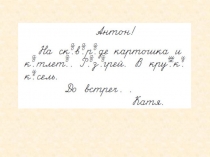 Антон!
На ск?в?р?де картошка и
к?тлет.. Р?з?грей. В кру?к?
к?сель.
До встреч. .
Катя.